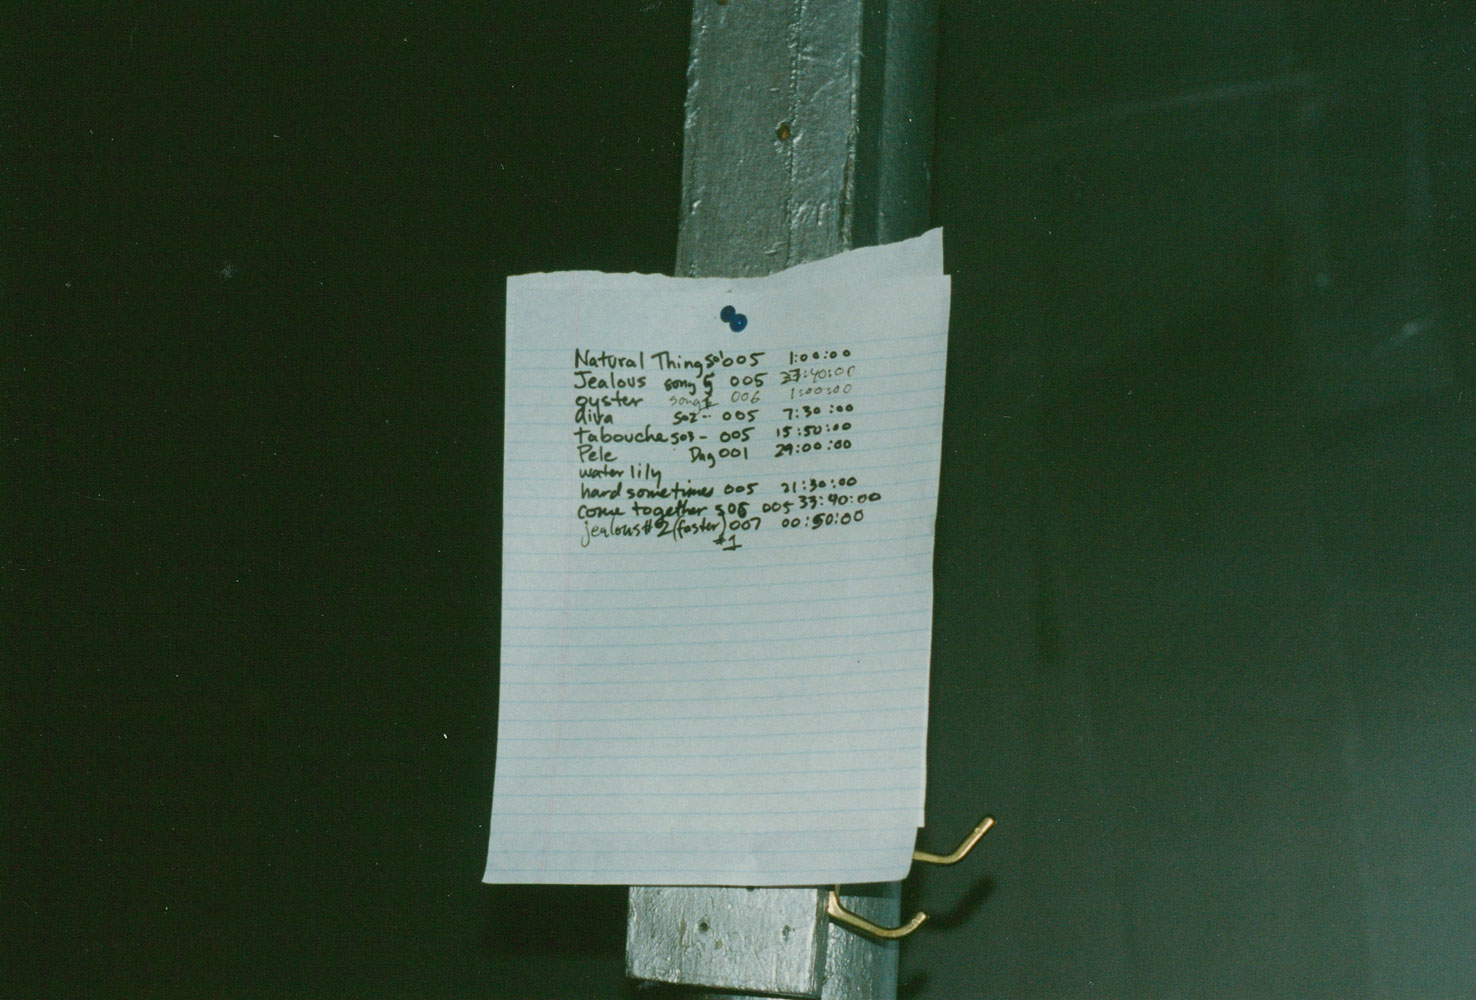 Natural Things 001 005 1:00:00
Jealous song 5 005 27:40:00
oyster song 1 006 1:00:00
diva 502-- 005 7:30:00
tabouche 503- 005 15:50:00
Pele Dag 001 29:00:00
water lily
hard sometimes 005 21:30:00
come together 506 005 33:40:00
jealous #2 (faster) 007 00:50:00
#1